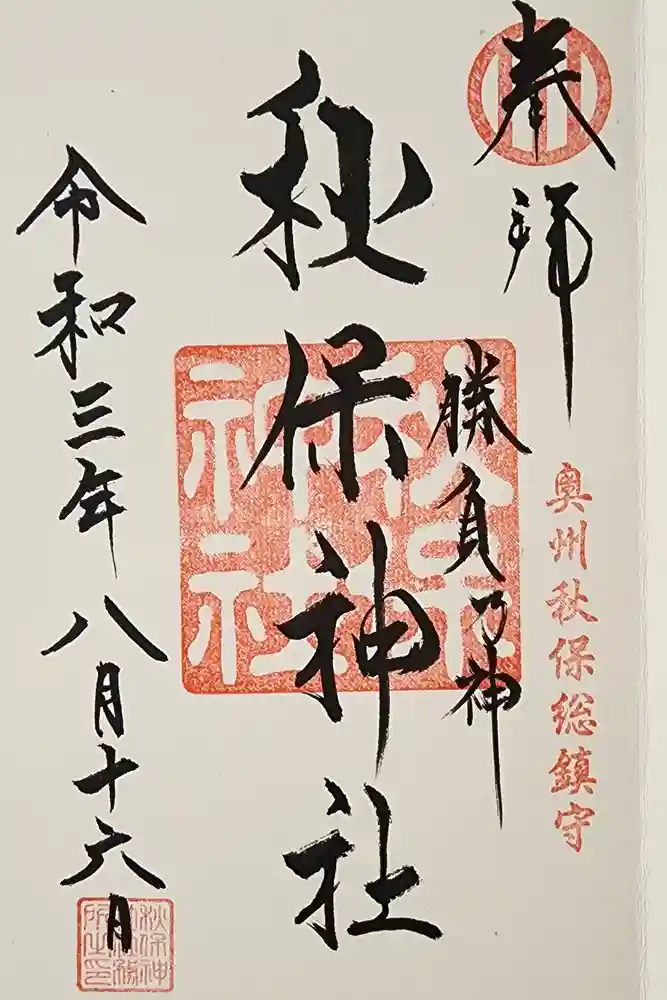 奉拝
奥州秋保総鎮守
勝負乃神
秋保神社
秋保神社
令和三年八月十六日
秋保神社社務所之印